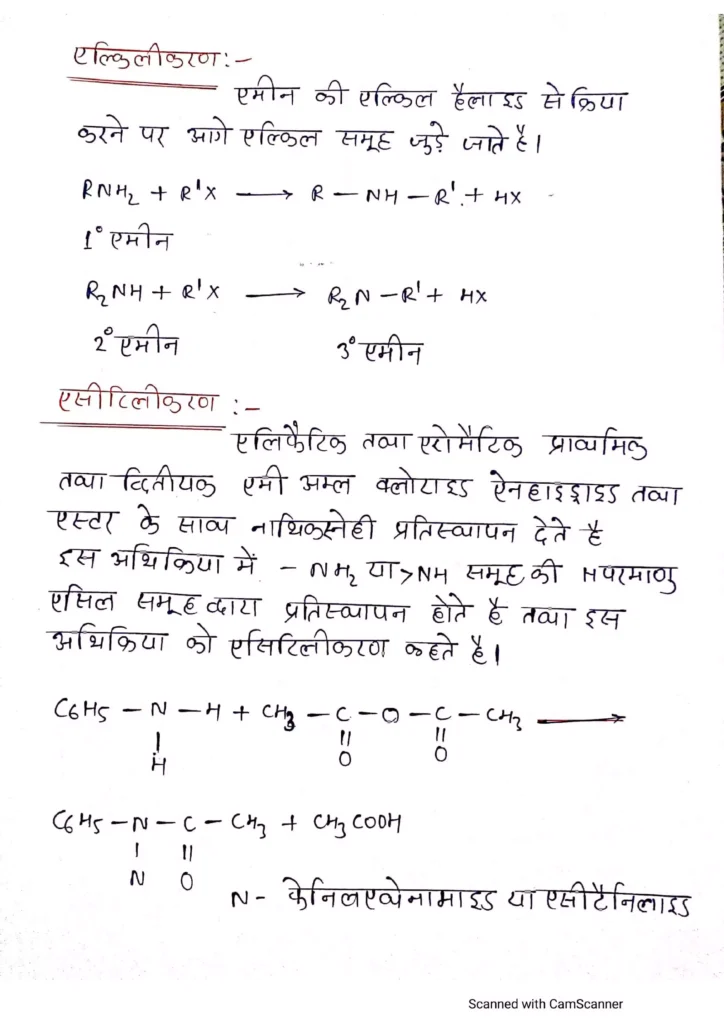 एल्किलीकरण:-
एमीन की एल्किल हैलाइड से क्रिया
करने पर आगे एल्किल समूह जुड़े जाते है।
RNH₂ + R'X ⟶ R — NH — R'. + HX
1° एमीन
R₂NH + R'X ⟶ R₂N — R' + HX
2° एमीन 3° एमीन
एसीटिलीकरण :-
एलिफैटिक तथा एरोमैटिक प्राथमिक
तथा द्वितीयक एमी अम्ल क्लोराइड ऐनहाइड्राइड तथा
एस्टर के साथ नाभिकस्नेही प्रतिस्थापन देते है
इस अभिक्रिया में - NH₂ या >NH समूह की H परमाणु
एसिल समूह द्वारा प्रतिस्थापन होते है तथा इस
अभिक्रिया को एसिटिलीकरण कहते है।
C6H5 — N — H + CH₃ — C — O — C — CH₃ ⟶
| || ||
H O O
C6H5 — N — C — CH₃ + CH₃COOH
| ||
N O
N- केनिलएथेनामाइड या एसीटैनिलाइड
Scanned with CamScanner